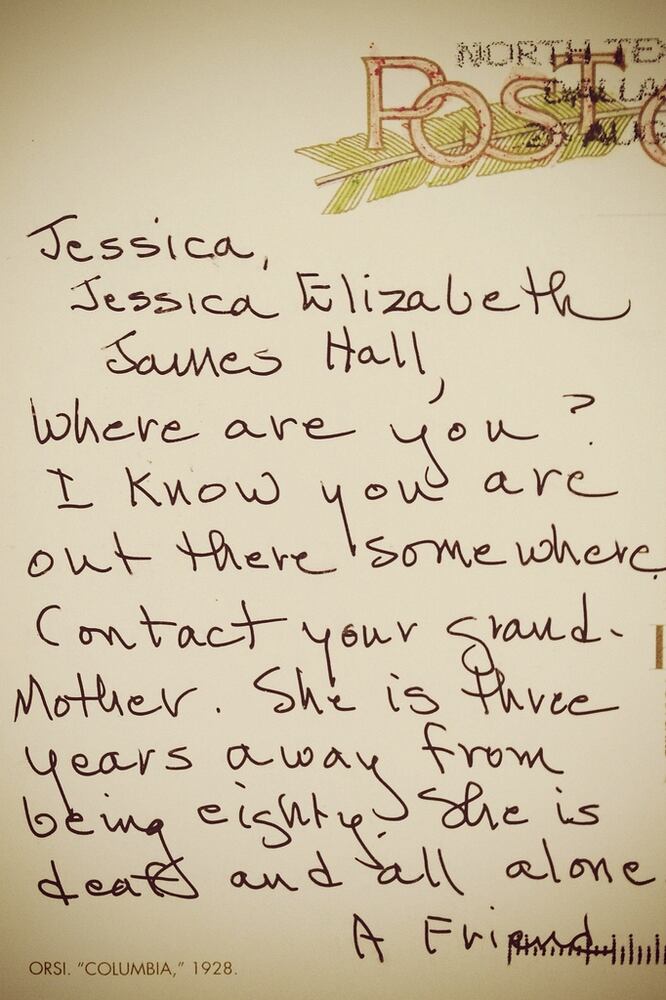 POST
NORTH TE
DALLA
26 AUG
Jessica,
Jessica Elizabeth
James Hall,
Where are you?
I know you are
out there somewhere.
Contact your grand-
Mother. She is three
years away from
being eighty. She is
deaf and all alone
A Friend
ORSI. "COLUMBIA," 1928.